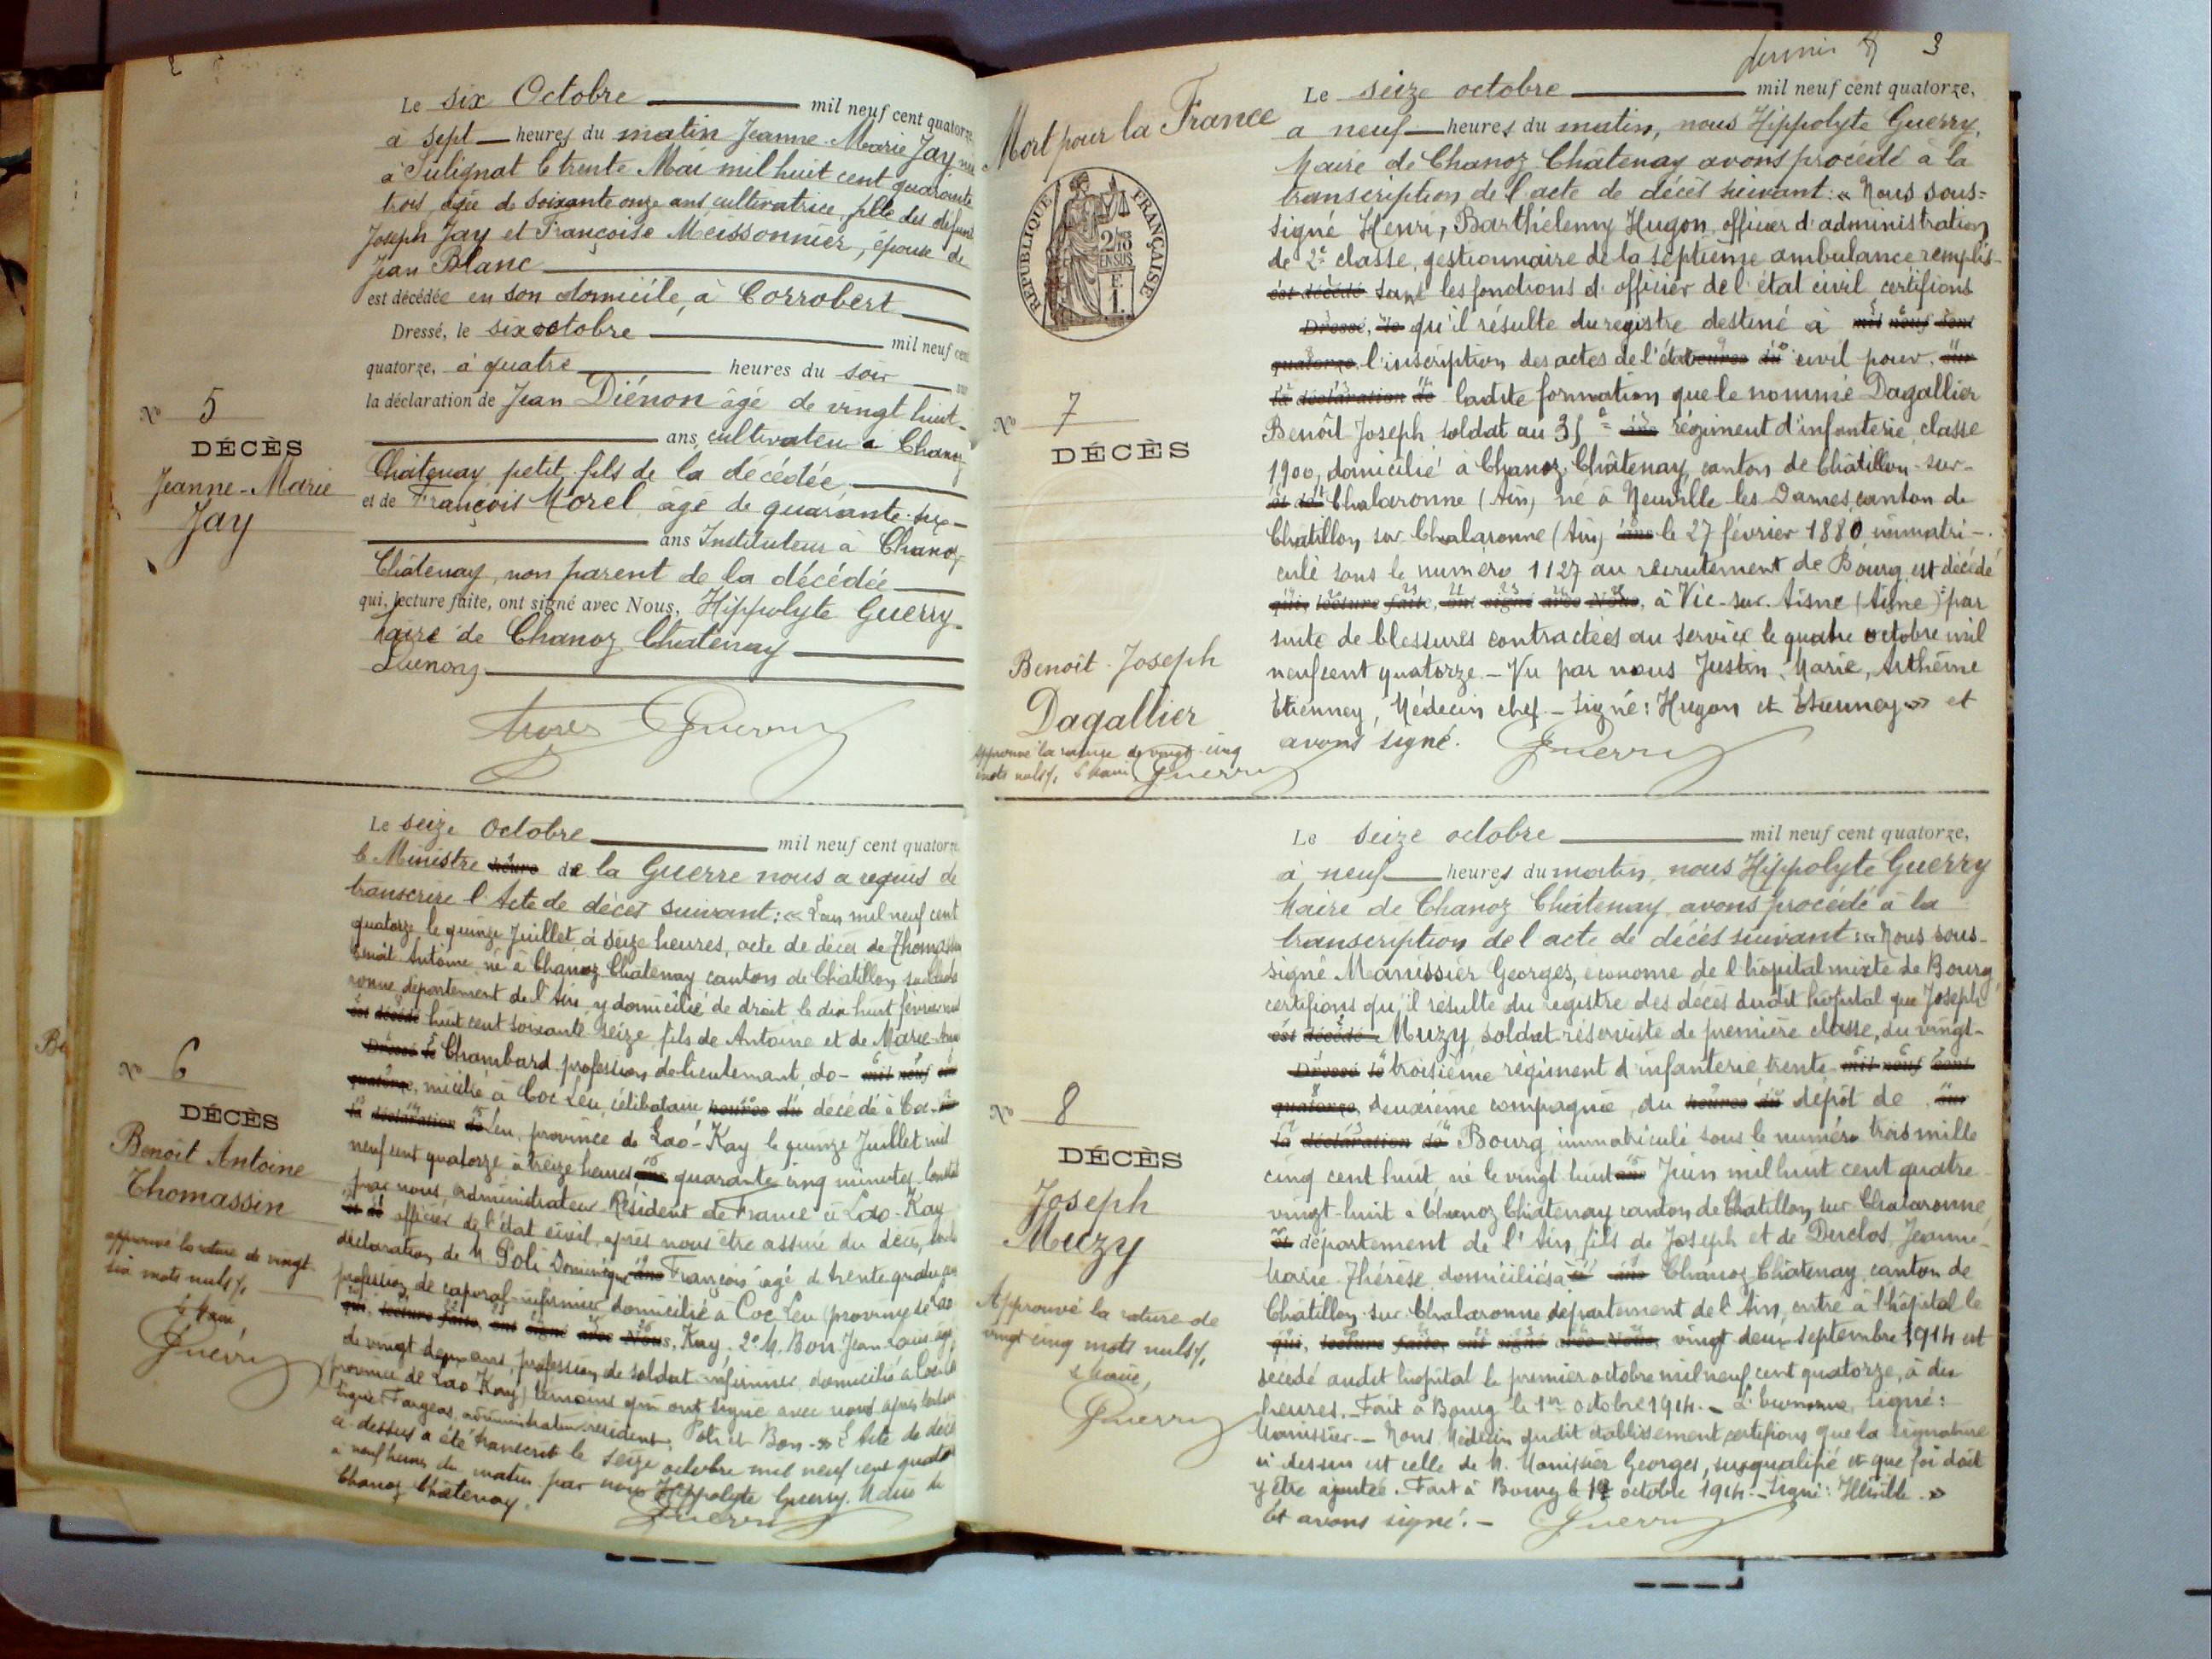 Le six Octobre mil neuf cent quatorze
à sept heures du matin Jeanne-Marie Jay née
à Sulignat le trente Mai mil huit cent quarante
trois, âgée de soixante onze ans cultivatrice, fille des défunts
Joseph Jay et Françoise Meissonnier, épouse de
Jean Blanc
est décédée en son domicile à Corrobert
Dressé, le six octobre mil neuf cent
quatorze, à quatre heures du soir sur
la déclaration de Jean Diénon âgé de vingt huit
ans, cultivateur à Chanoz
Châtenay, petit-fils de la décédée,
et de François Morel âgé de quarante-six
ans Instituteur à Chanoz
Châtenay, non parent de la décédée
qui, lecture faite, ont signé avec Nous, Hippolyte Guerry
Maire de Chanoz Châtenay
Guerry
N° 5
DÉCÈS
Jeanne-Marie
Jay
Le seize Octobre mil neuf cent quatorze
le Ministre heure de la Guerre nous a requis de
transcrire l'Acte de décès suivant: « L'an mil neuf cent
quatorze, le quinze Juillet, à seize heures, acte de décès de Thomassin
Benoît Antoine né à Chanoz Châtenay canton de Châtillon sur Chala
ronne, département de l'Ain, y domicilié de droit le dix huit février mil
est décédé huit cent soixante seize, fils de Antoine et de Marie
Dressé le Chambard profession de lieutenant, do- mil neuf cent
quatorze, micilié à Coc Leu, célibataire heures du décédé à Coc- sur
la déclaration de Leu, province de Lao-Kay le quinze Juillet mil
neuf cent quatorze à treize heures ans quarante cinq minutes. Constaté
par nous, administrateur Résident de France à Lao-Kay
et de officier de l'état civil, après nous être assuré du décès, sur la
déclaration de M. Poli Dominique ans François âgé de trente quatre ans
profession de caporal-infirmier domicilié à Coc Leu (province de Lao
qui, lecture faite, ont signé avec Nous, Kay, 2° M. Bon Jean Louis âgé
de vingt deux ans, profession de soldat infirmier, domicilié à Coc Leu
province de Lao Kay) témoins qui ont signé avec nous après lecture
Signé: Fargeas, administrateur résident, Poli et Bon. » L'Acte de décès
ci dessus a été transcrit le seize octobre mil neuf cent quatorze
à neuf heures du matin par nous Hippolyte Guerry. Maire de
Chanoz Châtenay.
Guerry
N° 6
DÉCÈS
Benoît Antoine
Thomassin
approuvé la rature de vingt
six mots nuls
Le Maire,
Guerry
3
Mort pour la France
RÉPUBLIQUE FRANÇAISE
Le seize octobre mil neuf cent quatorze,
à neuf heures du matin, nous Hippolyte Guerry,
Maire de Chanoz Châtenay avons procédé à la
transcription de l'acte de décès suivant: « Nous sous=
signé Henri, Barthélemy Hugon, officier d'administration
de 2e classe, gestionnaire de la septième ambulance remplis-
est décédé sant les fonctions d'officier de l'état civil certifions
Dressé, le qu'il résulte du registre destiné à mil neuf cent
quatorze l'inscription des actes de l'état heures du civil pour sur
la déclaration de ladite formation que le nommé Dagallier
Benoît Joseph soldat au 35e ans régiment d'infanterie, classe
1900, domicilié à Chanoz Châtenay, canton de Châtillon-sur-
et de Chalaronne (Ain) né à Neuville les Dames, canton de
Châtillon sur Chalaronne (Ain) ans le 27 février 1880 immatri-
culé sous le numéro 1127 au recrutement de Bourg est décédé
qui, lecture faite, ont signé avec Nous, à Vic-sur-Aisne (Aisne) par
suite de blessures contractées au service le quatre octobre mil
neuf cent quatorze. - Vu par nous Justin, Marie, Arthême
Etienney, Médecin chef. - Signé: Hugon et Etienney » et
avons signé. Guerry
N° 7
DÉCÈS
Benoît-Joseph
Dagallier
Approuvé la rature de vingt cinq
mots nuls. Le Maire, Guerry
Le seize octobre mil neuf cent quatorze,
à neuf heures du matin, nous Hippolyte Guerry
Maire de Chanoz Châtenay avons procédé à la
transcription de l'acte de décès suivant: « Nous sous-
signé Manissier Georges, économe de l'hôpital mixte de Bourg,
certifions qu'il résulte du registre des décès dudit hôpital que Joseph
est décédé Muzy, soldat réserviste de première classe, du vingt-
Dressé le troisième régiment d'infanterie, trente- mil neuf cent
quatorze, deuxième compagnie, du heures du dépôt de sur
la déclaration de Bourg, immatriculé sous le numéro trois mille
cinq cent huit, né le vingt huit ans Juin mil huit cent quatre-
vingt-huit à Chanoz Châtenay canton de Châtillon sur Chalaronne
et département de l'Ain, fils de Joseph et de Duclos, Jeanne-
Marie-Thérèse, domiciliés à ans Chanoz Châtenay, canton de
Châtillon-sur-Chalaronne département de l'Ain, entré à l'hôpital le
qui, lecture faite, ont signé avec Nous, vingt deux septembre 1914 est
décédé audit hôpital le premier octobre mil neuf cent quatorze, à dix
heures. - Fait à Bourg le 1er octobre 1914. - L'économe, Signé:
Manissier. - Nous Médecin dudit établissement certifions que la signature
ci dessus est celle de M. Manissier Georges, susqualifié et que foi doit
y être ajoutée. Fait à Bourg le octobre 1914. - Signé: Illisible. »
Et avons signé. - Guerry
N° 8
DÉCÈS
Joseph
Muzy
Approuvé la rature de
vingt cinq mots nuls,
Le Maire,
Guerry